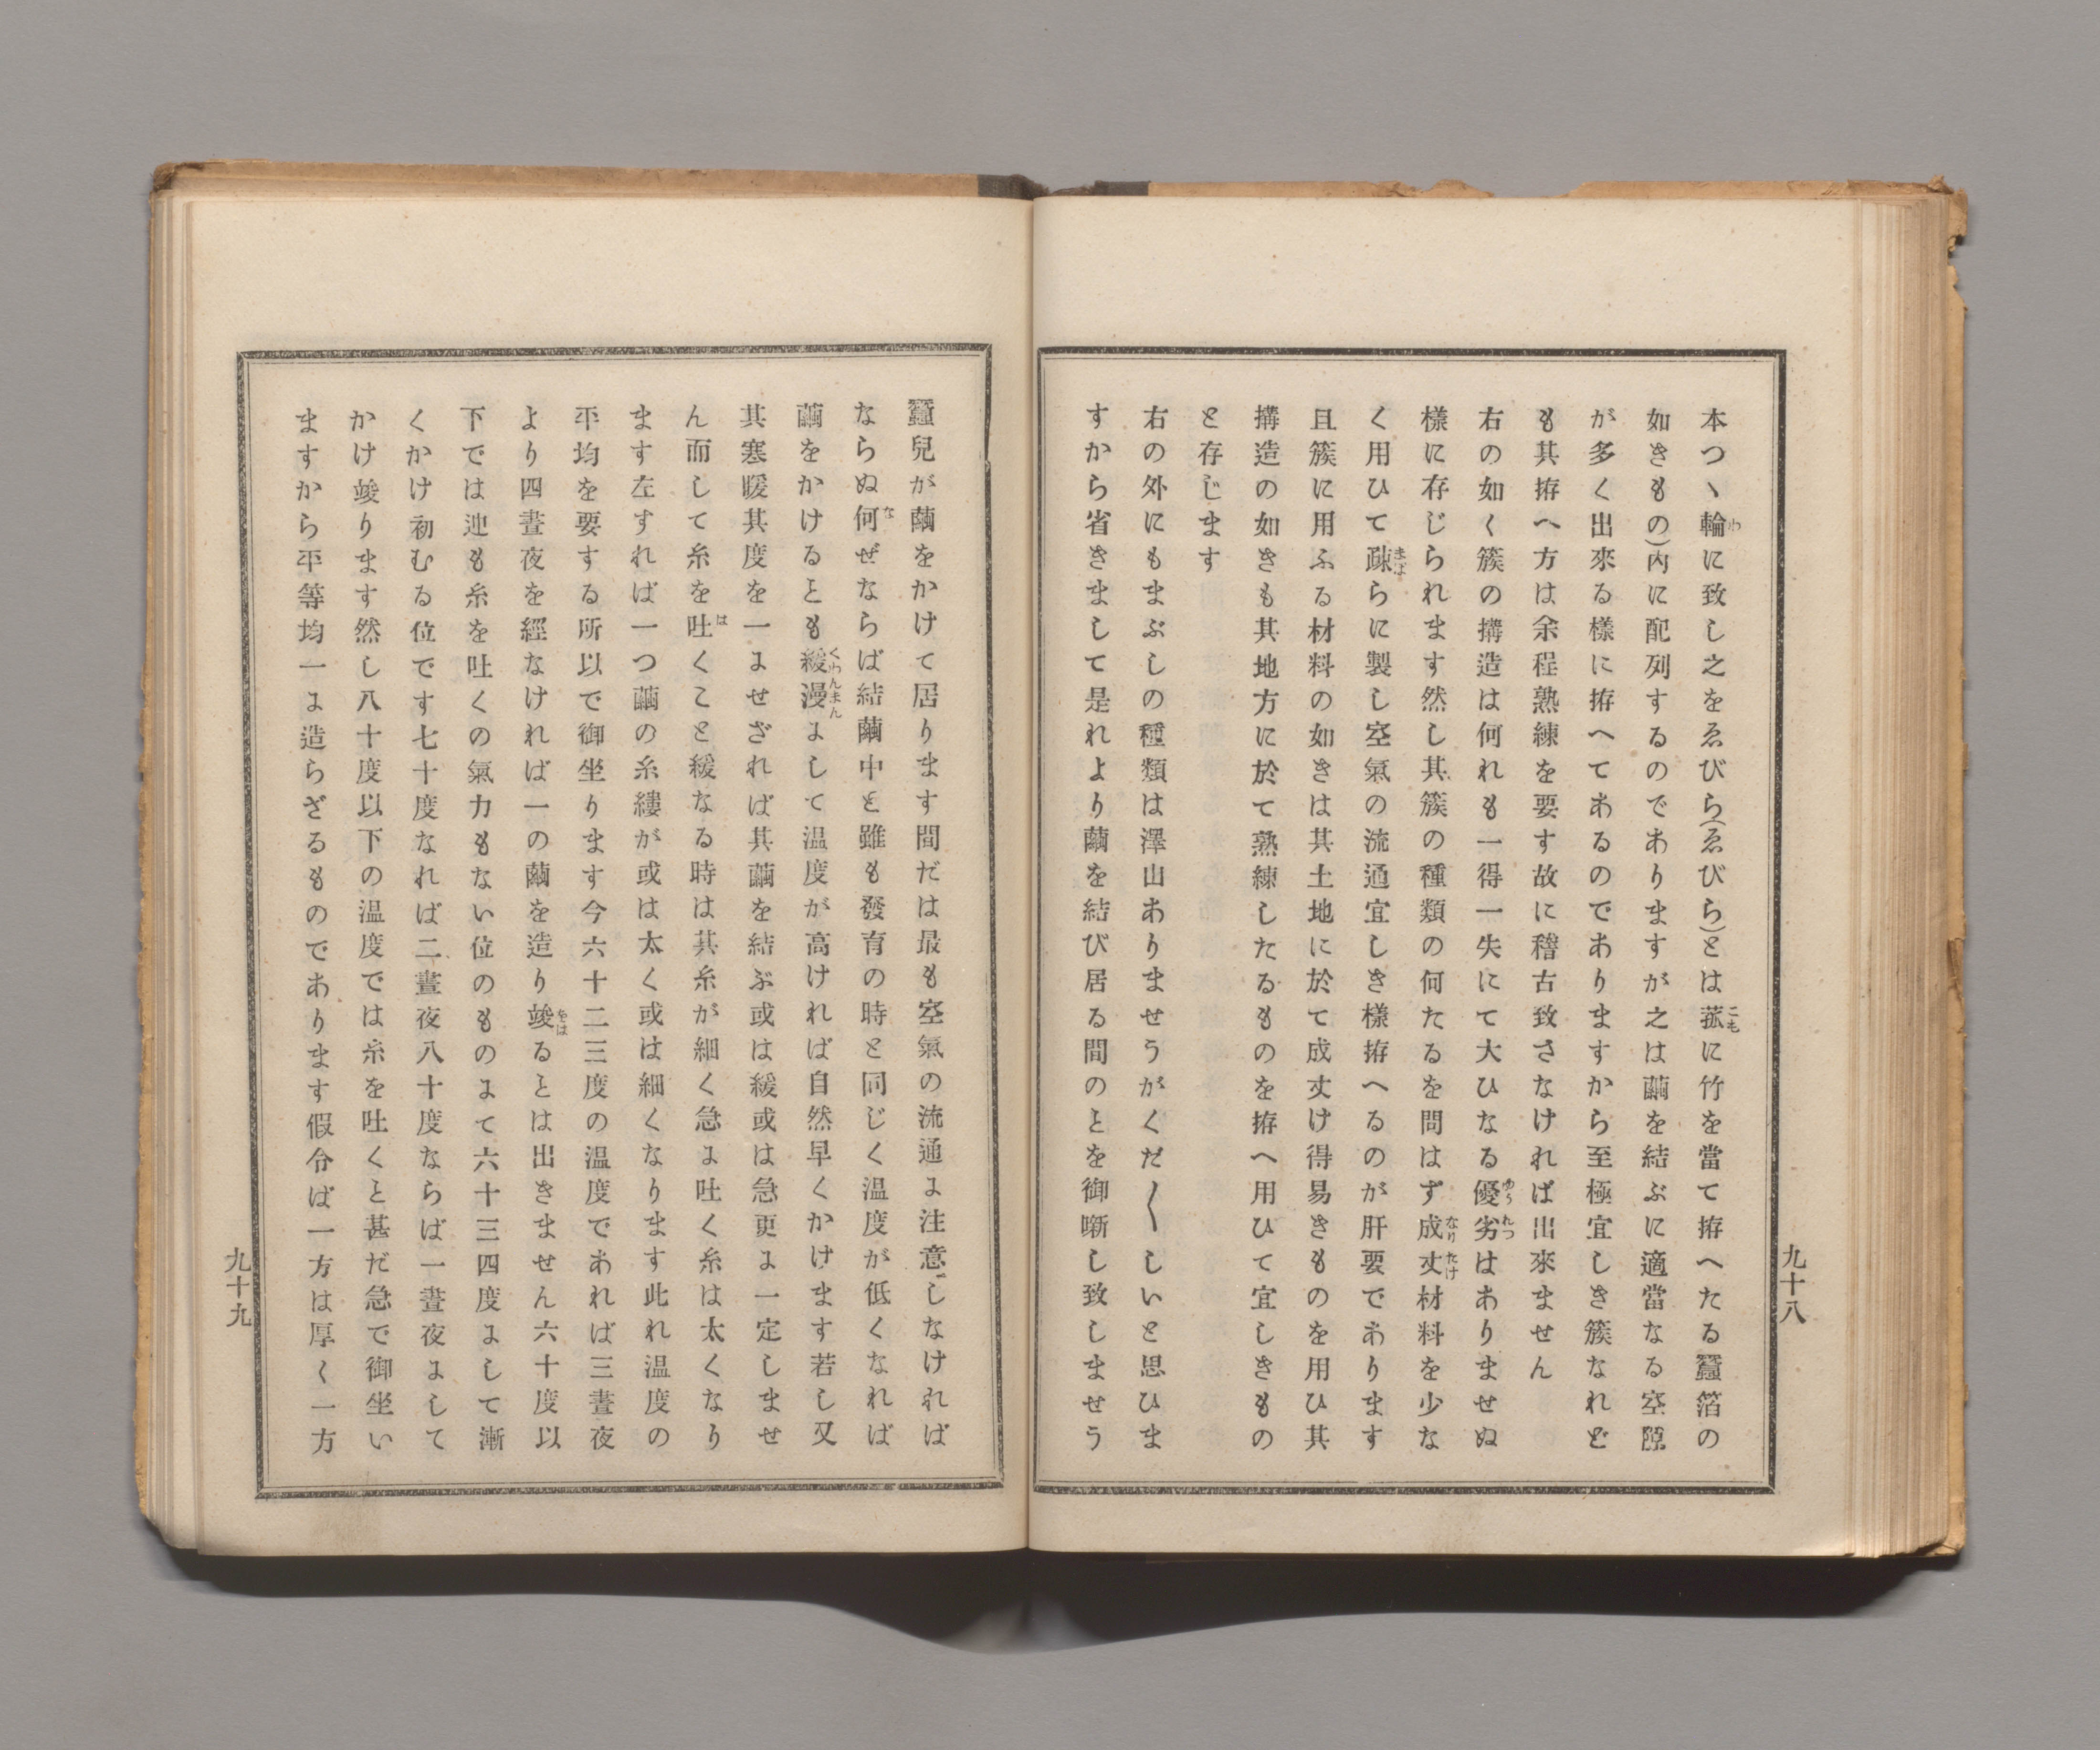 本つヽ輪に致し之をゑびら(ゑびら)とは菰に竹を當て拵へたる蠶箔の
如きもの)內に配列するのでありますが之は繭を結ぶに適當なる空隙
が多く出來る樣に拵へてあるのでありますから至極宜しき簇なれど
も其拵へ方は余程熟練を要す故に稽古致さなければ出來ません
右の如く簇の搆造は何れも一得一失にて大ひなる優劣はありませぬ
樣に存じられます然し其簇の種類の何たるを問はず成丈材料を少な
く用ひて疎らに製し空氣の流通宜しき樣拵へるのが肝要であります
且簇に用ふる材料の如きは其土地に於て成丈け得易きものを用ひ其
搆造の如きも其地方に於て熟練したるものを拵へ用ひて宜しきもの
と存じます
右の外にもまぶしの種類は澤山ありませうがくだ〱しいと思ひま
すから省きまして是れより繭を結び居る間のとを御噺し致しませう
九十八
蠶兒が繭をかけて居ります間だは最も空氣の流通に注意しなければ
ならぬ何ぜならば結繭中と雖も發育の時と同じく温度が低くなれば
繭をかけるとも緩漫にして温度が高ければ自然早くかけます若し又
其寒暖其度を一にせざれば其繭を結ぶ或は緩或は急更に一定しませ
ん而して糸を吐くこと緩なる時は其糸が細く急に吐く糸は太くなり
ます左すれば一つ繭の糸縷が或は太く或は細くなります此れ温度の
平均を要する所以で御坐ります今六十二三度の温度であれば三晝夜
より四晝夜を經なければ一の繭を造り竣るとは出きません六十度以
下では迚も糸を吐くの氣力もない位のものにて六十三四度にして漸
くかけ初むる位です七十度なれば二晝夜八十度ならば一晝夜にして
かけ竣ります然し八十度以下の温度では糸を吐くと甚だ急で御坐い
ますから平等均一に造らざるものであります假令ば一方は厚く一方
九十九